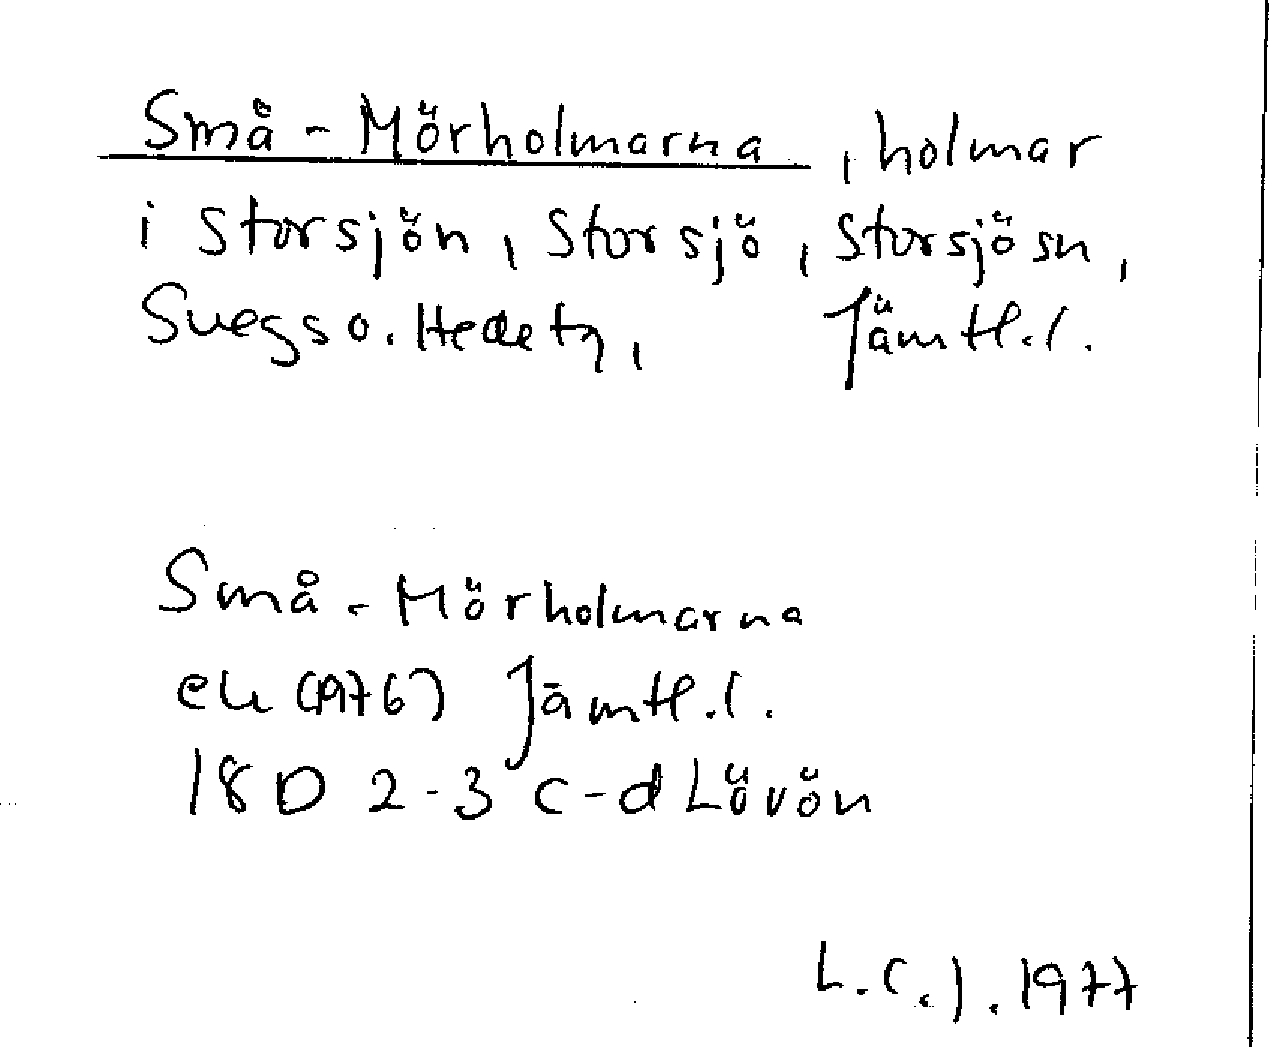 Små-Mörholmarna, holmar
i Storsjön, Storsjö, Storsjö sn,
Svegs o. Hede tg, Jämtl.l.
Små-Mörholmarna
ek (1976) Jämtl.l.
18D 2-3 c-d Lövön
L.C.J. 1977